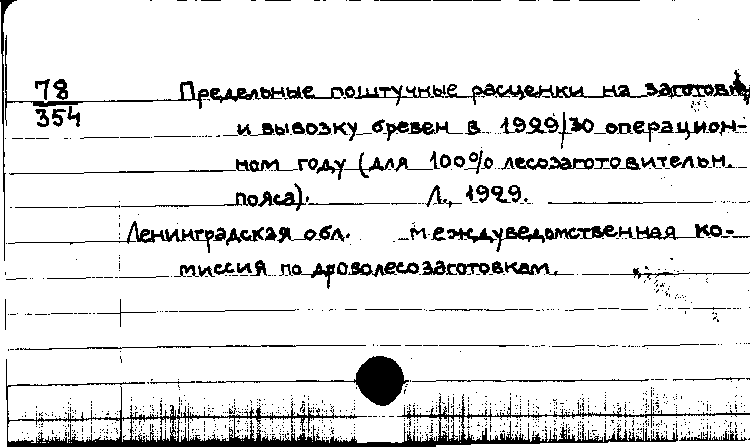 78
354
Предельные поштучные расценки на заготовку
и вывозку бревен в 1929/30 операцион-
ном году (для 100% лесозаготовительн.
пояса). Л., 1929.
Ленинградская обл. междуведомственная ко-
миссия по дроволесозаготовкам.